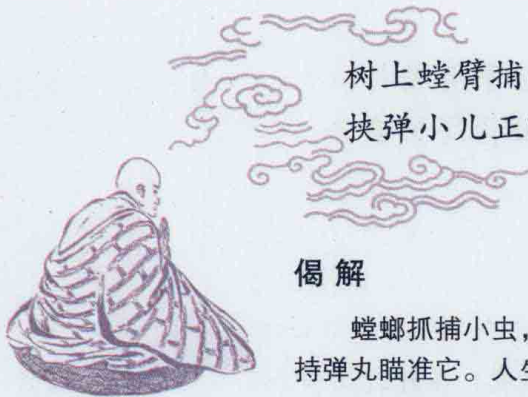 树上螳臂捕
挟弹小儿正
偈解
螳螂抓捕小虫，
持弹丸瞄准它。人生